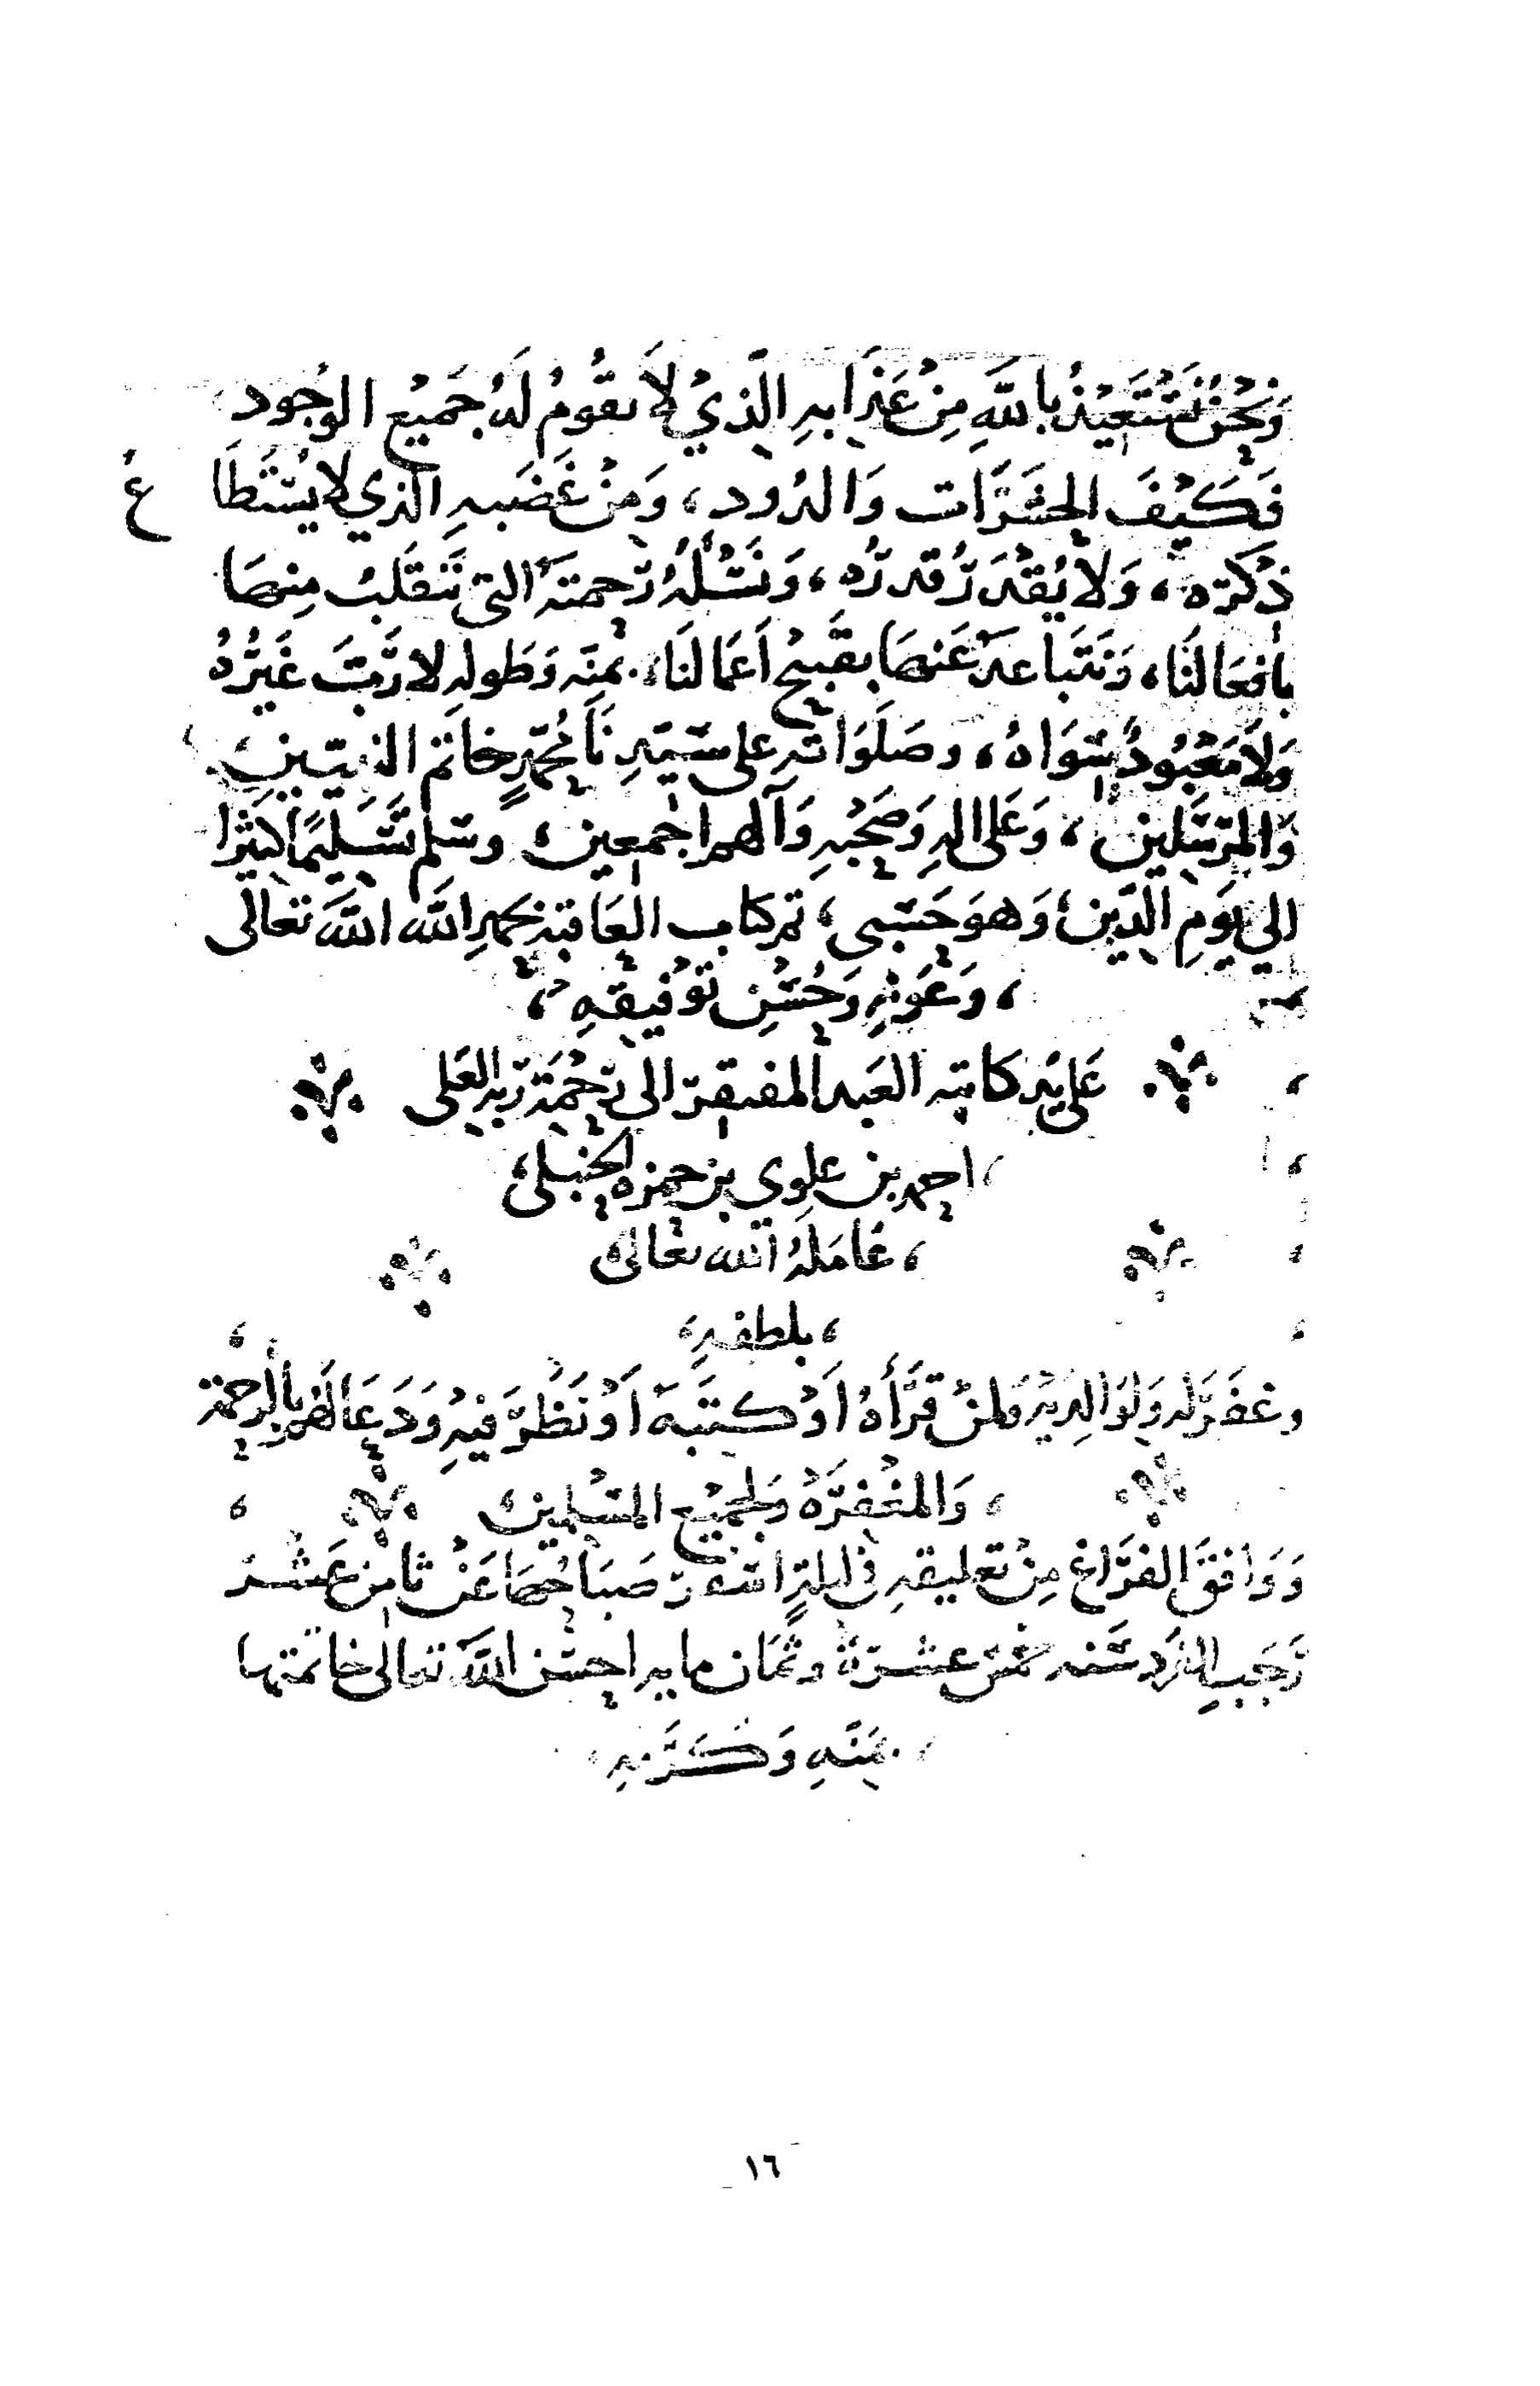 وَنَحْنُ نَسْتَعِيْذُ بِاللَّهِ مِنْ عَذَابِهِ الَّذِيْ لاَ تقُومُ لَهُ جَمَيْع الوجُود
فَكَيْفَ الحشَرَات وَالدُود، وَمِنْ غَضَبهِ الذي لا يُسْتَطَاعُ
ذِكْرَه، وَلا يُقْدَرُ قدرُه، وَنَسْئلُهُ رَحمتَهُ التي نَنقَلبُ مِنهَا
بافعَالنَا، وَنَتَبَاعدَ عَنهَا بقَبيْح اَعمَالنَا، بمنّه وَطَوله لا رَبَّ غَيْرُهُ
وَلاَ مَعْبُودٌ سِوَاهُ، وصَلَوَاتهِ على سَيّدِنَا مُحمّدٍ خاتَم النبيّينَ
وَالمرسَلين، وَعَلى الهِ وَصَحْبهِ وَآلهم اجمعين، وسَلم تَسَليمًا كثيرًا
الي يَومِ الدّين، وَهوَ حَسْبي، تم كتاب العَاقبة بحمدِ الله اللهَ تعَالى
، وَعَوْنِهِ وَحُسْنِ تَوْفيقهِ،
عَلى يَد كَاتبه العَبد المفتقر الى رَحْمَة رَبه العَلى
، احمد بن علوي بن حمزه الحنبلى،
، عَامَلهُ الله تعَالى
، بلطفهِ،
وغفَر له وَلوَالدَيْه وَلمنْ قَرَأهُ اَوْ كتَبَهَ اَوْ نَظَرَ فيهِ وَدَعَا لهُم بالرحمة
، وَالمغْفرَة وَلجميْع المسْلمين
وَوَافقَ الفرَاغ مِنْ تعليقه في ليلةٍ اسْفر صَبَاحُهَا عَنْ ثامن عَشَر
رَجَب الفَرد سَنه خمس عَشرَة وثمَان مايه احسَن اللهَ تعَالى خاتمتها
بمَنّهِ وَكَرَمهِ
١٦